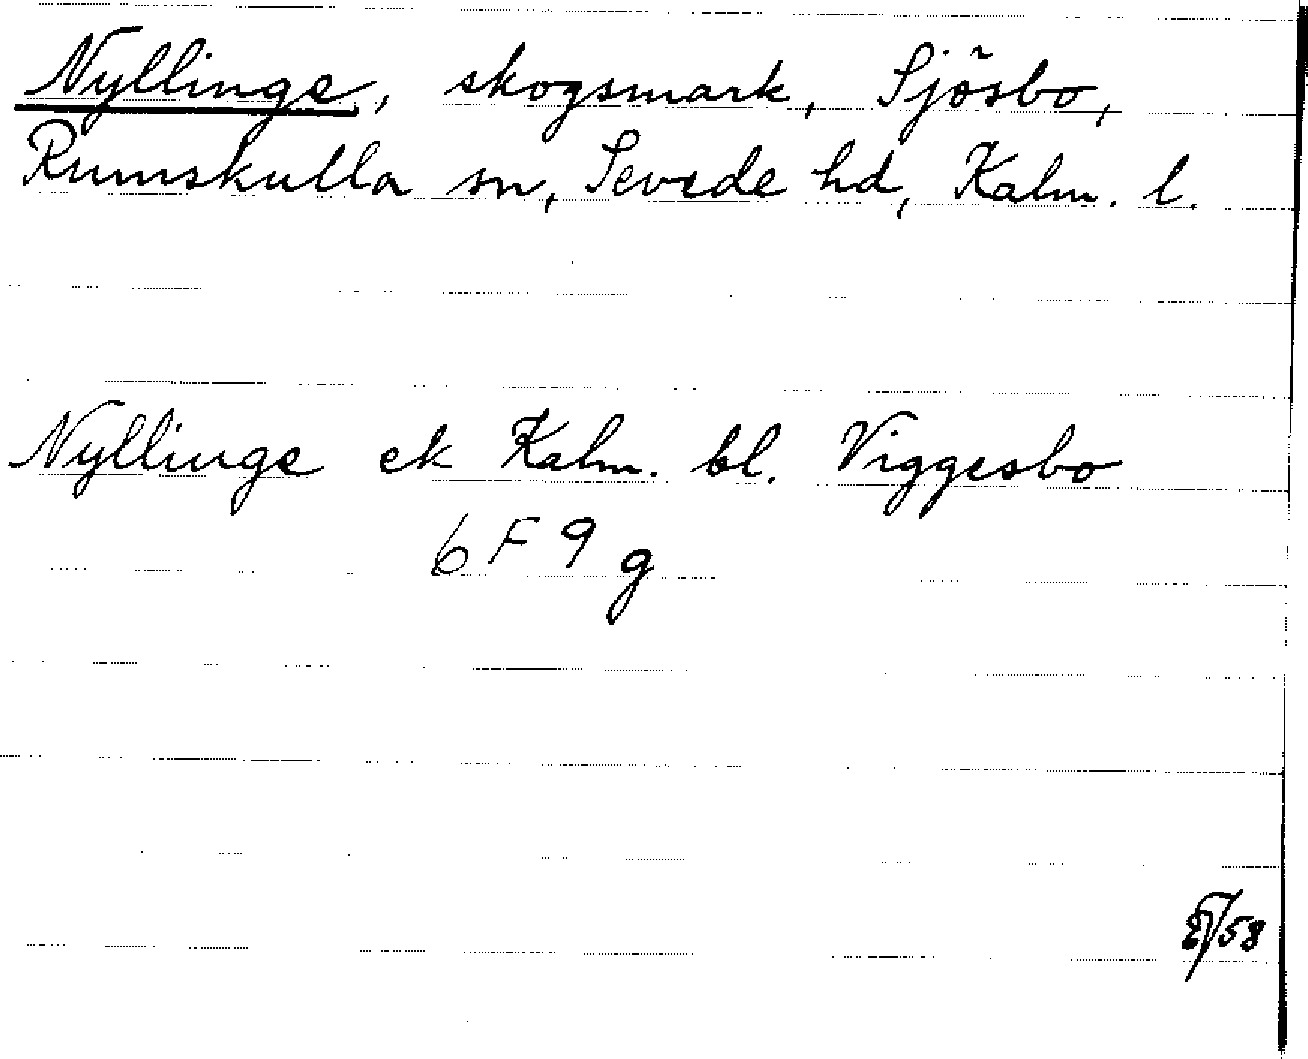 Nyllinge, skogsmark, Sjösbo,
Rumskulla sn, Sevede hd, Kalm. l.
Nyllinge ek Kalm. bl. Viggesbo
6 F 9 g
/58